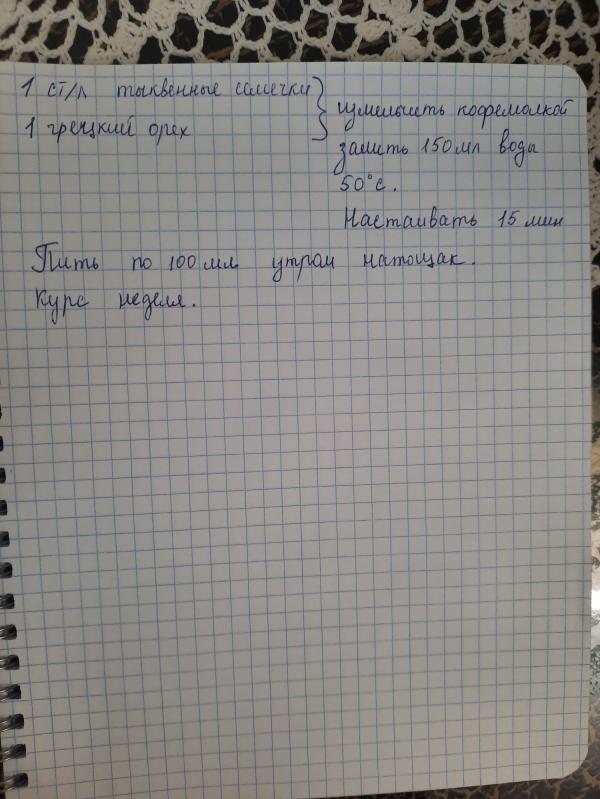 1 ст/л тыквенные семечки
1 грецкий орех
измельчить кофемолкой
залить 150 мл воды
50°с.
Настаивать 15 мин
Пить по 100 мл утром натощак.
Курс неделя.